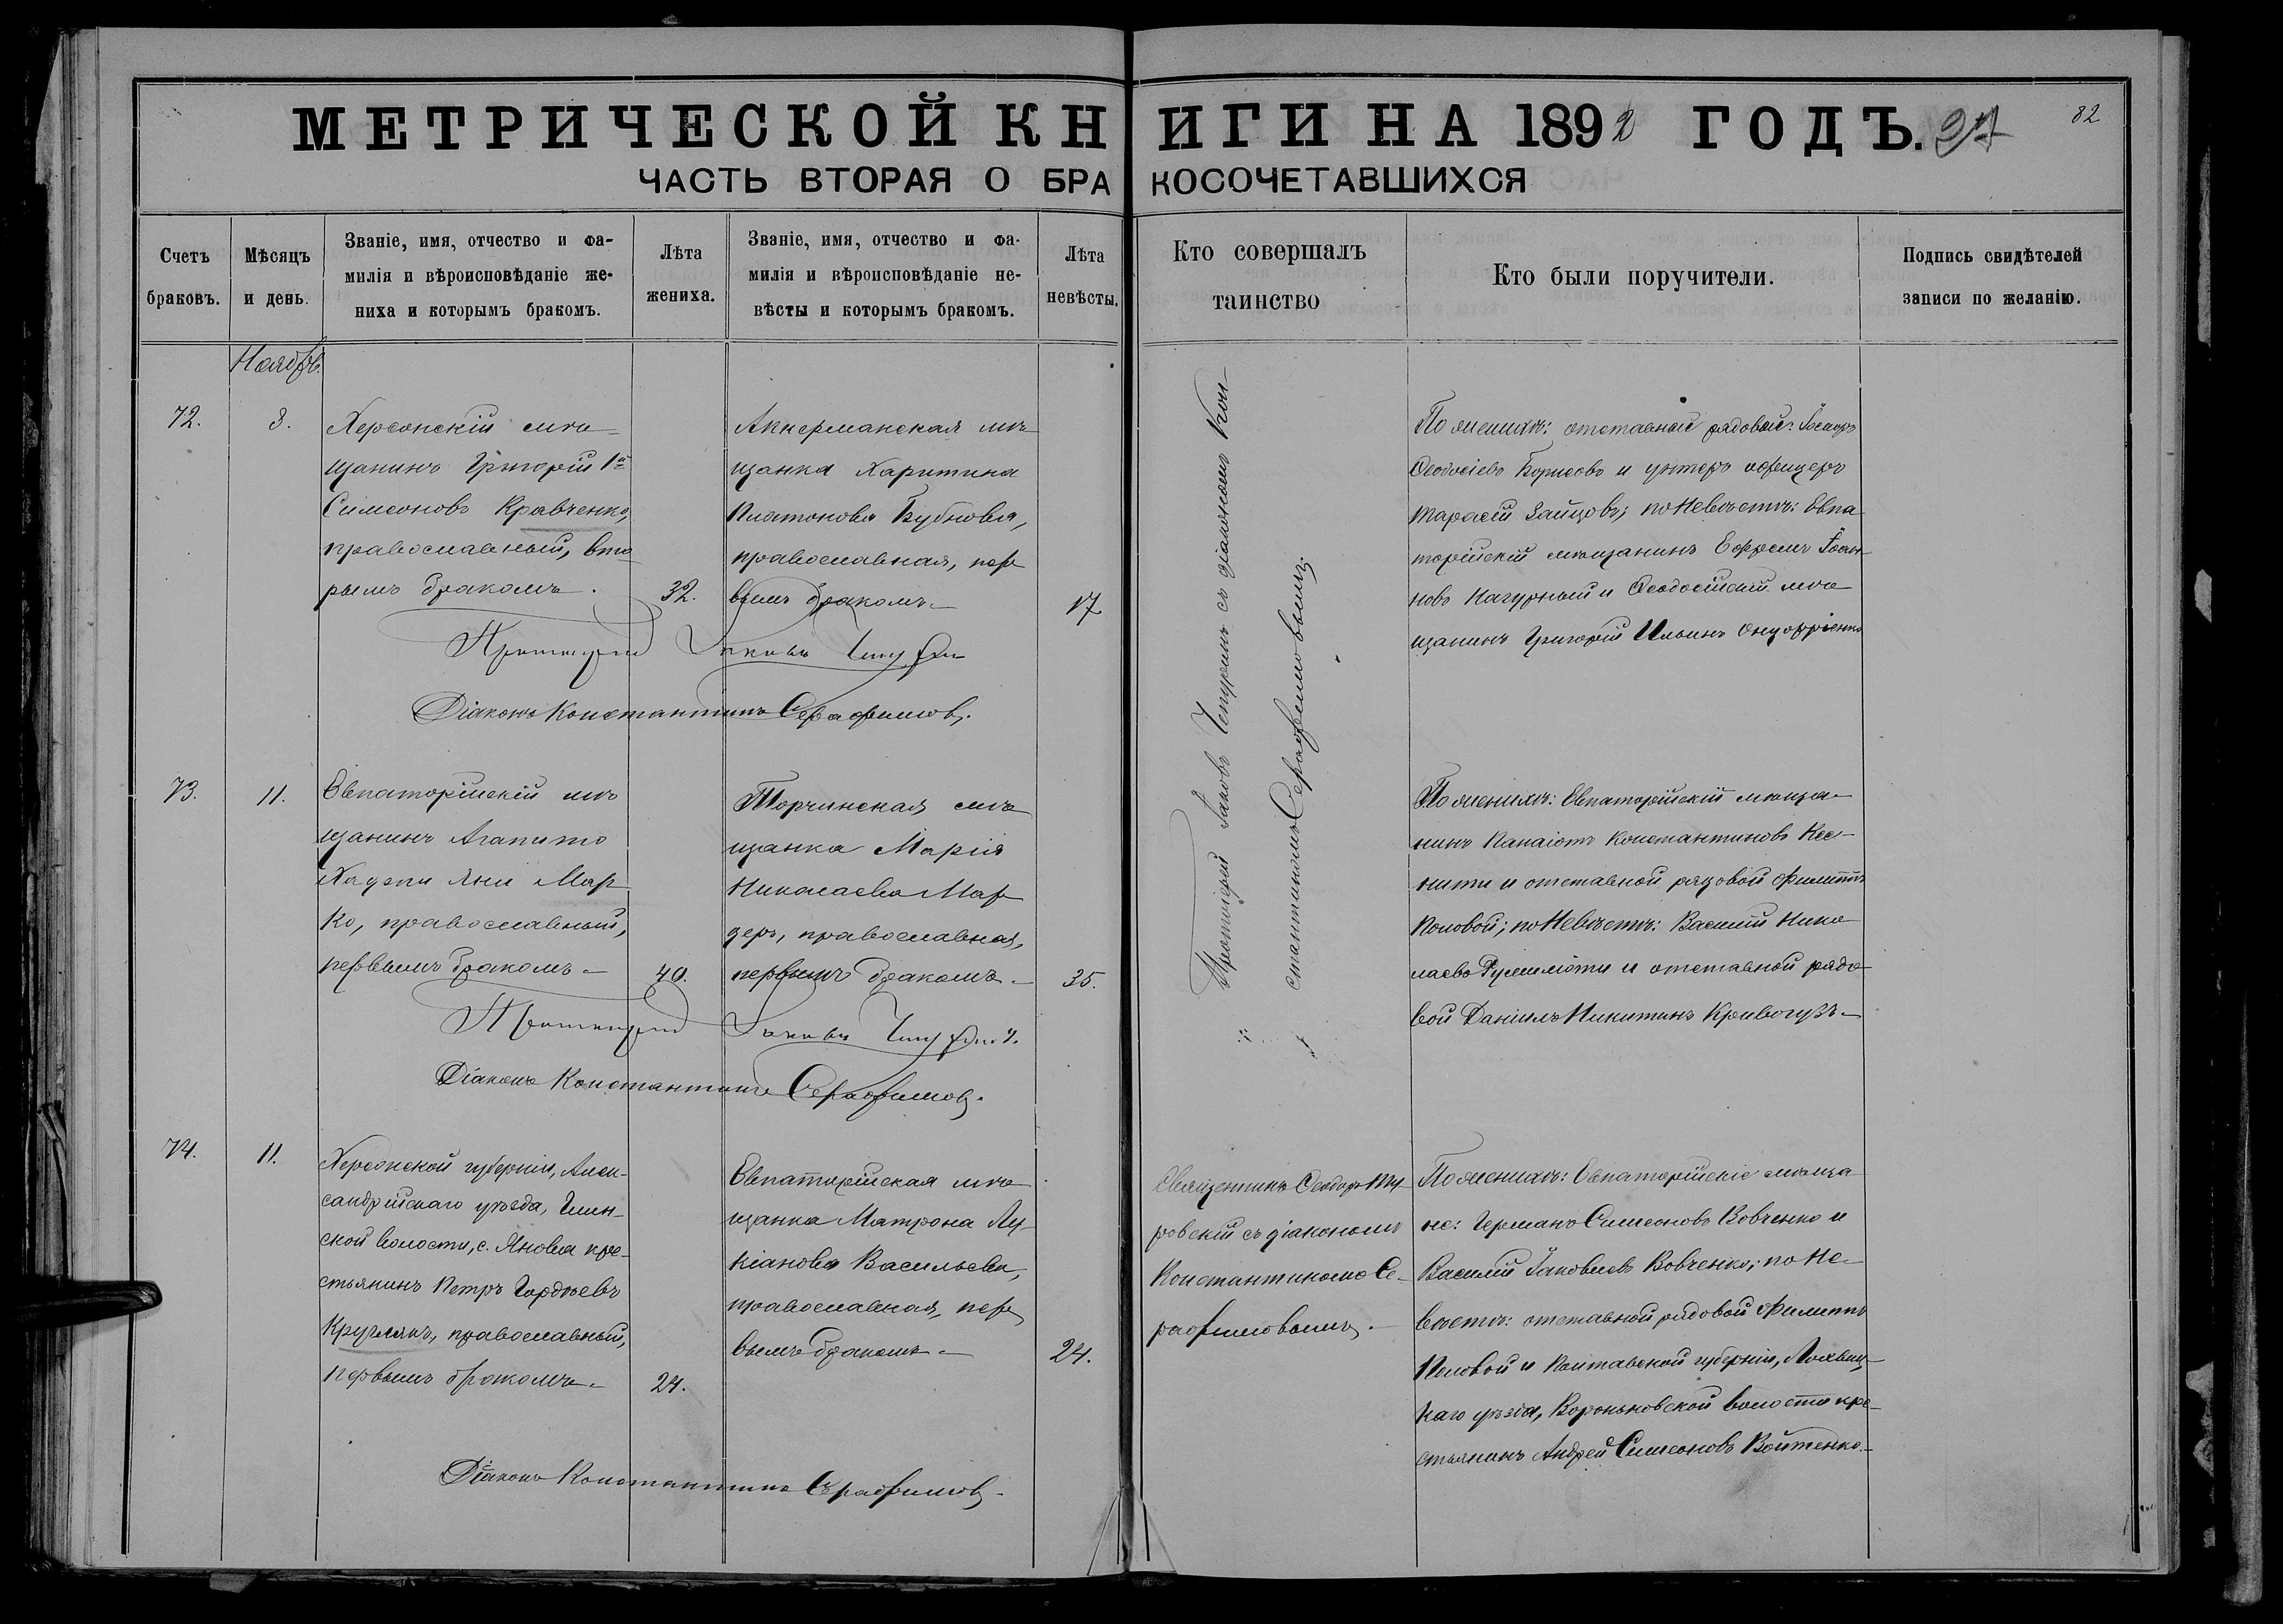 МЕТРИЧЕСКОЙ КНИГИ НА 1892 ГОДЪ. 27 82
ЧАСТЬ ВТОРАЯ О БРАКОСОЧЕТАВШИХСЯ
Счетъ
браковъ.
Мѣсяцъ
и день.
Званіе, имя, отчество и фа-
милія и вѣроисповѣданіе же-
ниха и которымъ бракомъ.
Лѣта
жениха.
Званіе, имя, отчество и фа-
милія и вѣроисповѣданіе не-
вѣсты и которымъ бракомъ.
Лѣта
невѣсты.
Кто совершалъ
таинство
Кто были поручители.
Подпись свидѣтелей
записи по желанію.
Ноябрь.
72.
8.
Херсонскій мѣ-
щанинъ Григорій 1й
Симеоновъ Кравченко,
православный, вто
рымъ бракомъ.
32.
Аккерманская мѣ
щанка Харитина
Платонова Бубнова,
православная, пер
вымъ бракомъ.
17
Протоіерей Іаковъ Чепуринъ съ діакономъ Кон-
стантиномъ Серафимовымъ.
По женихѣ: отставные рядовые: Іосифъ
Ѳеодосіевъ Борисовъ и унтеръ офицеръ
Тарасій Зайцовъ; по невѣстѣ: Евпа
торійскій мѣщанинъ Ефремъ Іоан-
новъ Кагурный и Ѳеодосійскій мѣ-
щанинъ Григорій Ильинъ Онуфріенко
Протоіерей Іаковъ Чепуринъ
Діаконъ Константинъ Серафимовъ.
73.
11.
Евпаторійскій мѣ
щанинъ Агапито
Яни Мар
ко, православный,
первымъ бракомъ -
40.
Торчинская мѣ
щанка Марія
Николаева Мар
деръ, православная,
первымъ бракомъ -
35.
По женихѣ: Евпаторійскій мѣща-
нинъ Панаіотъ Константиновъ Ксе-
нити и отставной рядовой Филиппъ
Половой; по невѣстѣ: Василій Нико
лаевъ и отставной рядо
вой Даніилъ Никитинъ Кривогузъ -
Протоіерей Іаковъ Чепуринъ.
Діаконъ Константинъ Серафимовъ.
74.
11.
Херсонской губерніи, Алек-
сандрійскаго уѣзда,
ской волости, с. Яновка кре-
стьянинъ Петръ Гордѣевъ
Кругликъ, православный,
первымъ бракомъ -
24.
Евпаторійская мѣ
щанка Матрона Лу
кіанова Васильева,
православная, пер
вымъ бракомъ -
24.
Священникъ Ѳеодоръ
ровскій съ діакономъ
Константиномъ Се-
рафимовымъ. -
По женихѣ: Евпаторійскіе мѣща
не: Германъ Симеоновъ Вовченко и
Василій Іаковлевъ Вовченко; по не-
вѣстѣ: отставной рядовой Филиппъ
Половой и Полтавской губерніи, Лохвиц-
каго уѣзда, Вороньковской волости кре-
стьянинъ Андрей Симеоновъ Войтенко. -
Діаконъ Константинъ Серафимовъ.